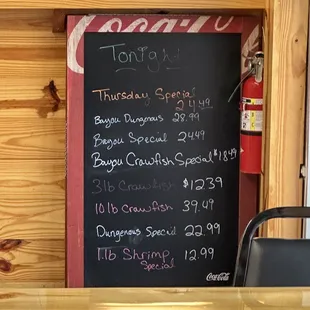 Coca-Cola
Tonight
Thursday Special
24.49
Bayou Dungenous 28.99
Bayou Special 24.49
Bayou Crawfish Special $18.49
3lb Crawfish $12.39
10lb Crawfish 39.49
Dungenous Special 22.99
1lb Shrimp 12.99
Special
Coca-Cola